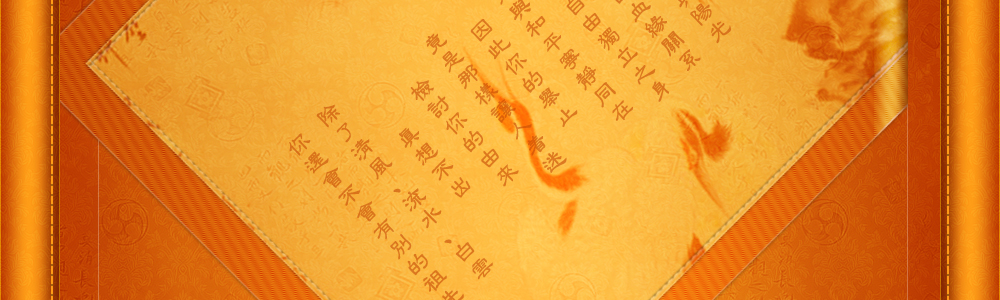 陽光
血緣關系
自由獨立之身
與和平寧靜同在
因此你的舉止
竟是那樣讓人着迷
檢討你的由來
真想不出
除了清風、流水、白雲
你還會不會有別的祖先